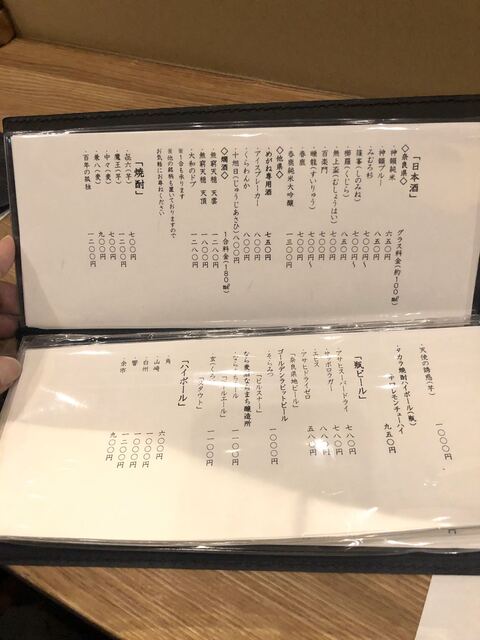 「日本酒」
◇奈良県◇ グラス料金(約100㎖)
神韻純米 六五〇円
神韻ブルー 八五〇円
・みむろ杉 七〇〇円〜
・篠峯(しのみね) 七〇〇円〜
・櫛羅(くじら) 八五〇円
・無上盃(むじょうはい)
・百楽門 七〇〇円〜
・睡龍(すいりゅう)
・春鹿
・春鹿純米大吟醸 一三〇〇円
◇他県◇
・めがね専用酒 七五〇円
・アイスブレーカー
・くらわんか
・十旭日(じゅうじあさひ) 八〇〇円
◇燗酒◇ 1合料金(180㎖)
・無窮天穏 天雲 一二八〇円
・無窮天穏 天頂 一八〇〇円
・大和のどぶ 一二八〇円
※1合も承ります
※他の銘柄も置いておりますので
お気軽にお尋ねください
「焼酎」
・㐂六(芋) 七〇〇円
・魔王(芋) 一二〇〇円
・中々(麦) 七〇〇円
・兼八(麦) 九〇〇円
・百年の孤独 一二〇〇円
天使の誘惑(芋) 一〇〇〇円
・タカラ焼酎ハイボール(瓶)
レモンチューハイ 九五〇円
「瓶ビール」
アサヒスーパードライ 七八〇円
・サッポロラガー 七八〇円
・エビス 八八〇円
・アサヒドライゼロ 五八〇円
「奈良県地ビール」
・そらみつ
ゴールデンラビットビール 一〇〇〇円
「ピルスナー」
なら麦酒ならまち醸造所
「スタウト」
「ハイボール」
角 六〇〇円
・山崎 一〇〇〇円
・白州 一〇〇〇円
・響 一二〇〇円
・余市 九〇〇円